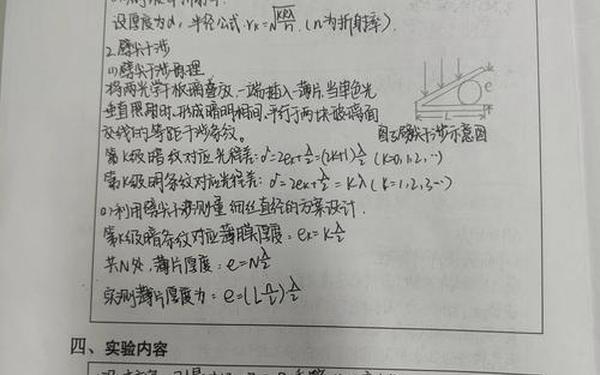 设厚度为d，半径公式 rₖ=√(kRλ/n).（n为折射率）.
2.劈尖干涉
(1)劈尖干涉原理
将两光学平板玻璃叠放一端插入一薄片,当单色光
垂直照射时,形成暗明相间,平行于两块玻璃面
交线的等距干涉条纹。
e
L
图3劈尖干涉示意图
第K级暗纹对应光程差:δ=2eₖ+λ/2=(2k+1)λ/2 (k=0,1,2,…)
第K级明条纹对应光程差:δ=2eₖ+λ/2=kλ(k=1,2,3…)
(2)利用劈尖干涉测量细丝直径的方案设计.
第K级暗条纹对应薄膜厚度:eₖ=kλ/2
共N处,薄片厚度:e=Nλ/2
实测薄片厚度为:e=(L n/l)λ/2
四、实验内容